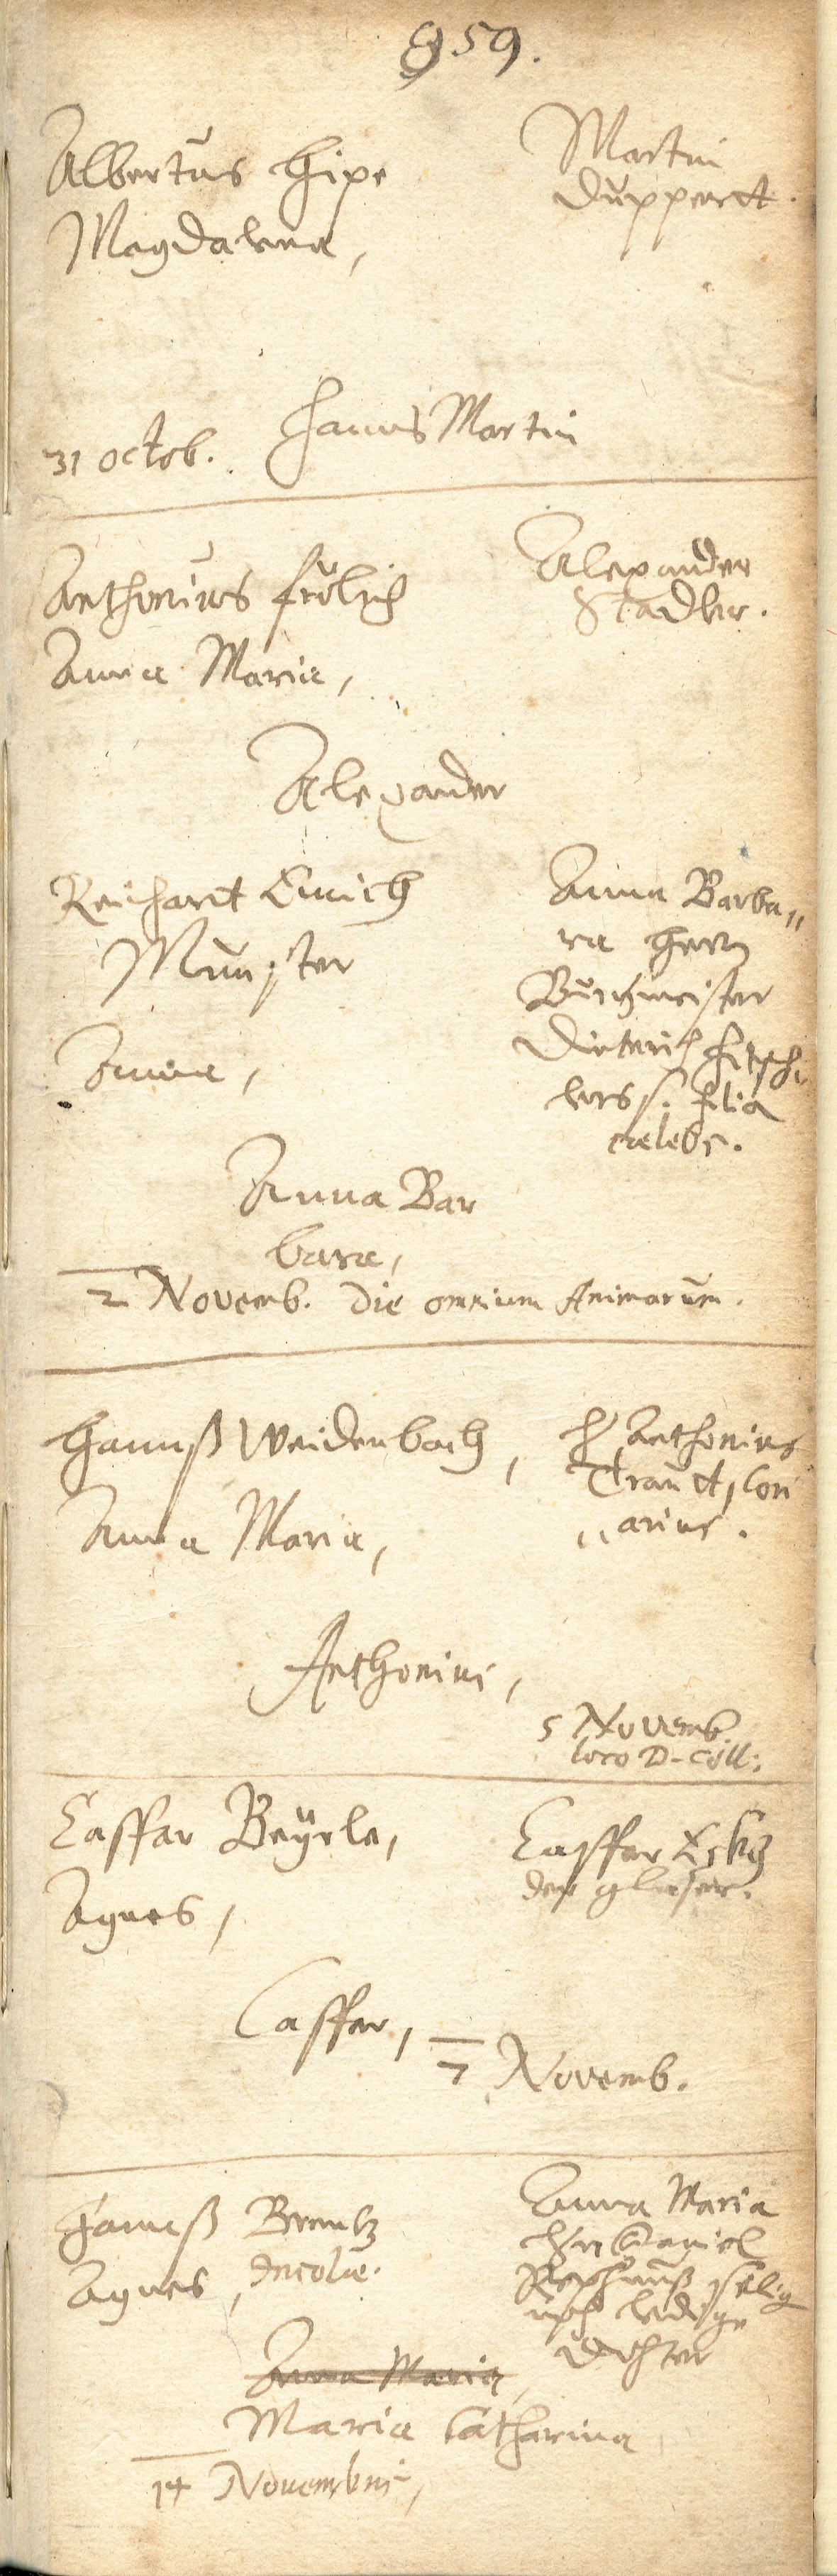 859.
Albertus Hipe
Magdalena,
Martin
Duppert.
31 octob. Hanns Martin
Anthonius frölich
Anna Maria,
Alexander
Stadler.
Alexander
Reichart Emich
Münster
Anna,
Anna Barba„
ra Herrn
Burgmeister
Dieterich
lers s. filia
caelebs.
Anna Bar
bara,
2 Novemb. Die omnium Animarum.
Hannß Weidenbach,
Anna Maria,
H Anthonius
„arius.
Anthonius,
5 Novemb.
loco D. Coll:
Casspar Beÿrle,
Agnes,
Casspar
der glaser.
Casspar,
7 Novemb.
Hannß Brentz
Agnes, Incolae.
Anna Maria
Daniel
selig
ledige
Dochter
Anna Maria,
Maria Catharina
14 Novembris,